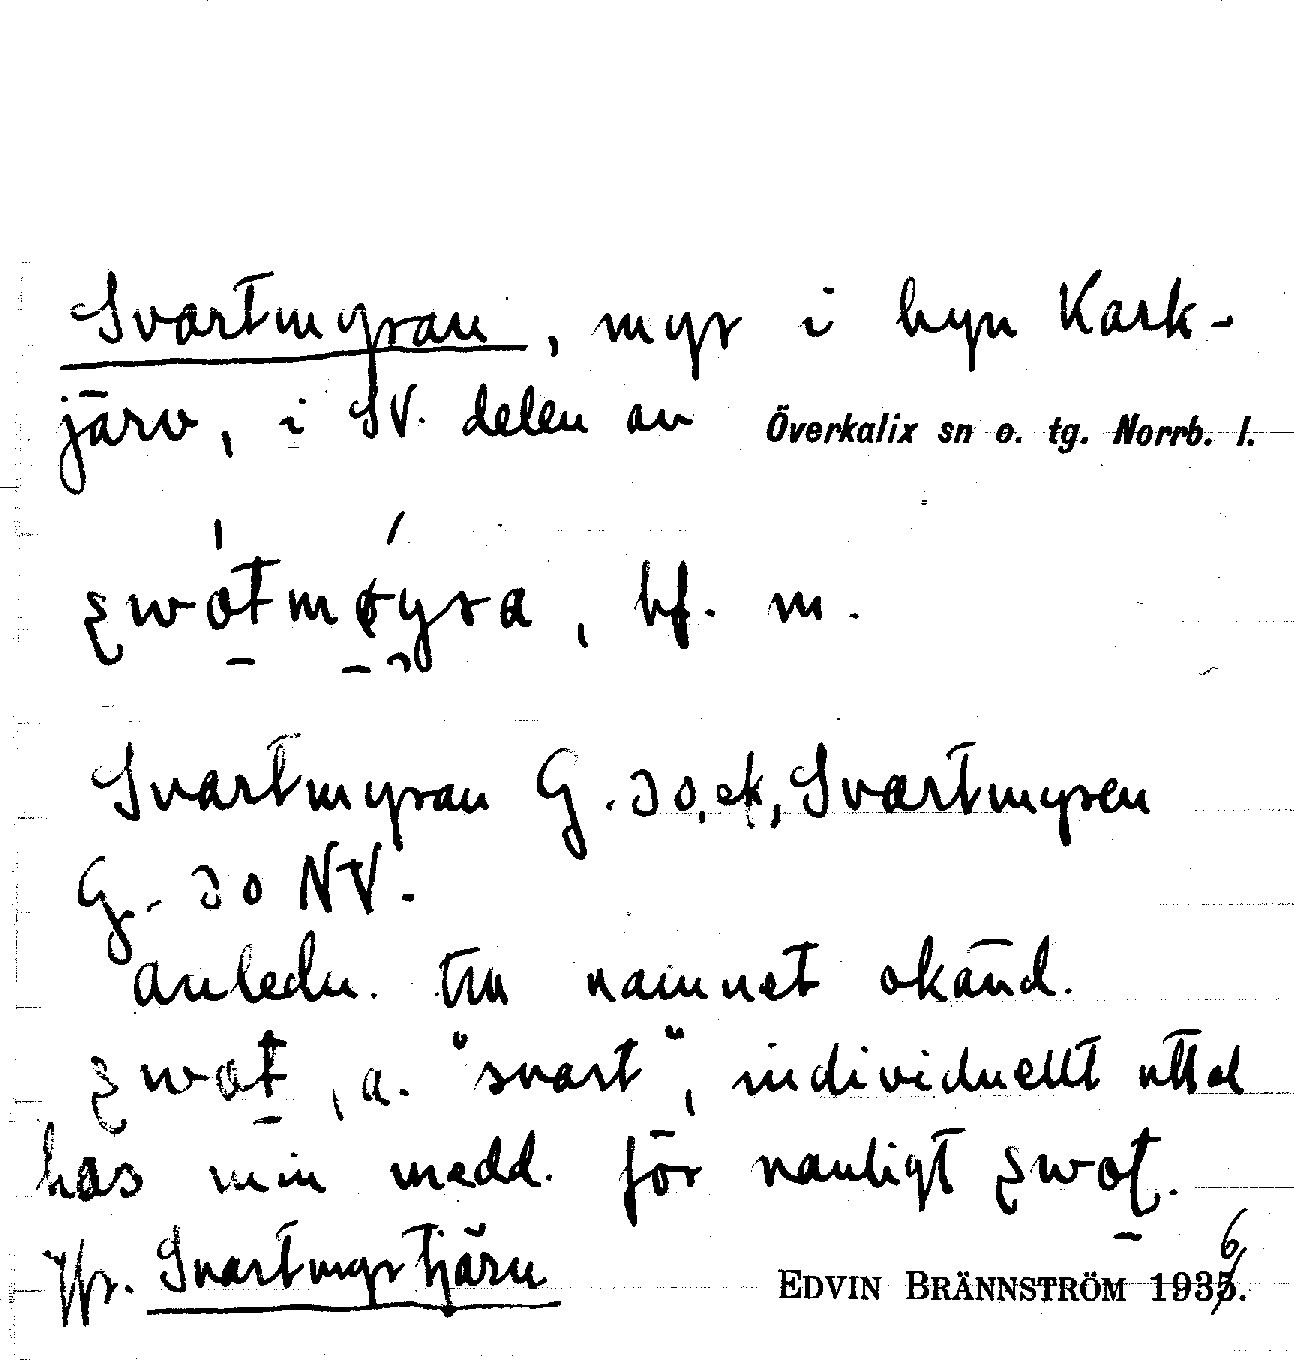 Svartmyran, myr i byn Kark-
järv, i SV. delen av Överkalix sn o. tg. Norrb. l.
bf. m.
Svartmyran G. 30, ek, Svartmyren
G. 30 NV.
Anledn. till namnet okänd.
a. "svart", individuellt uttal
hos min medd. för vanligt
Jfr. Svartmyrtjärn EDVIN BRÄNNSTRÖM 1936.